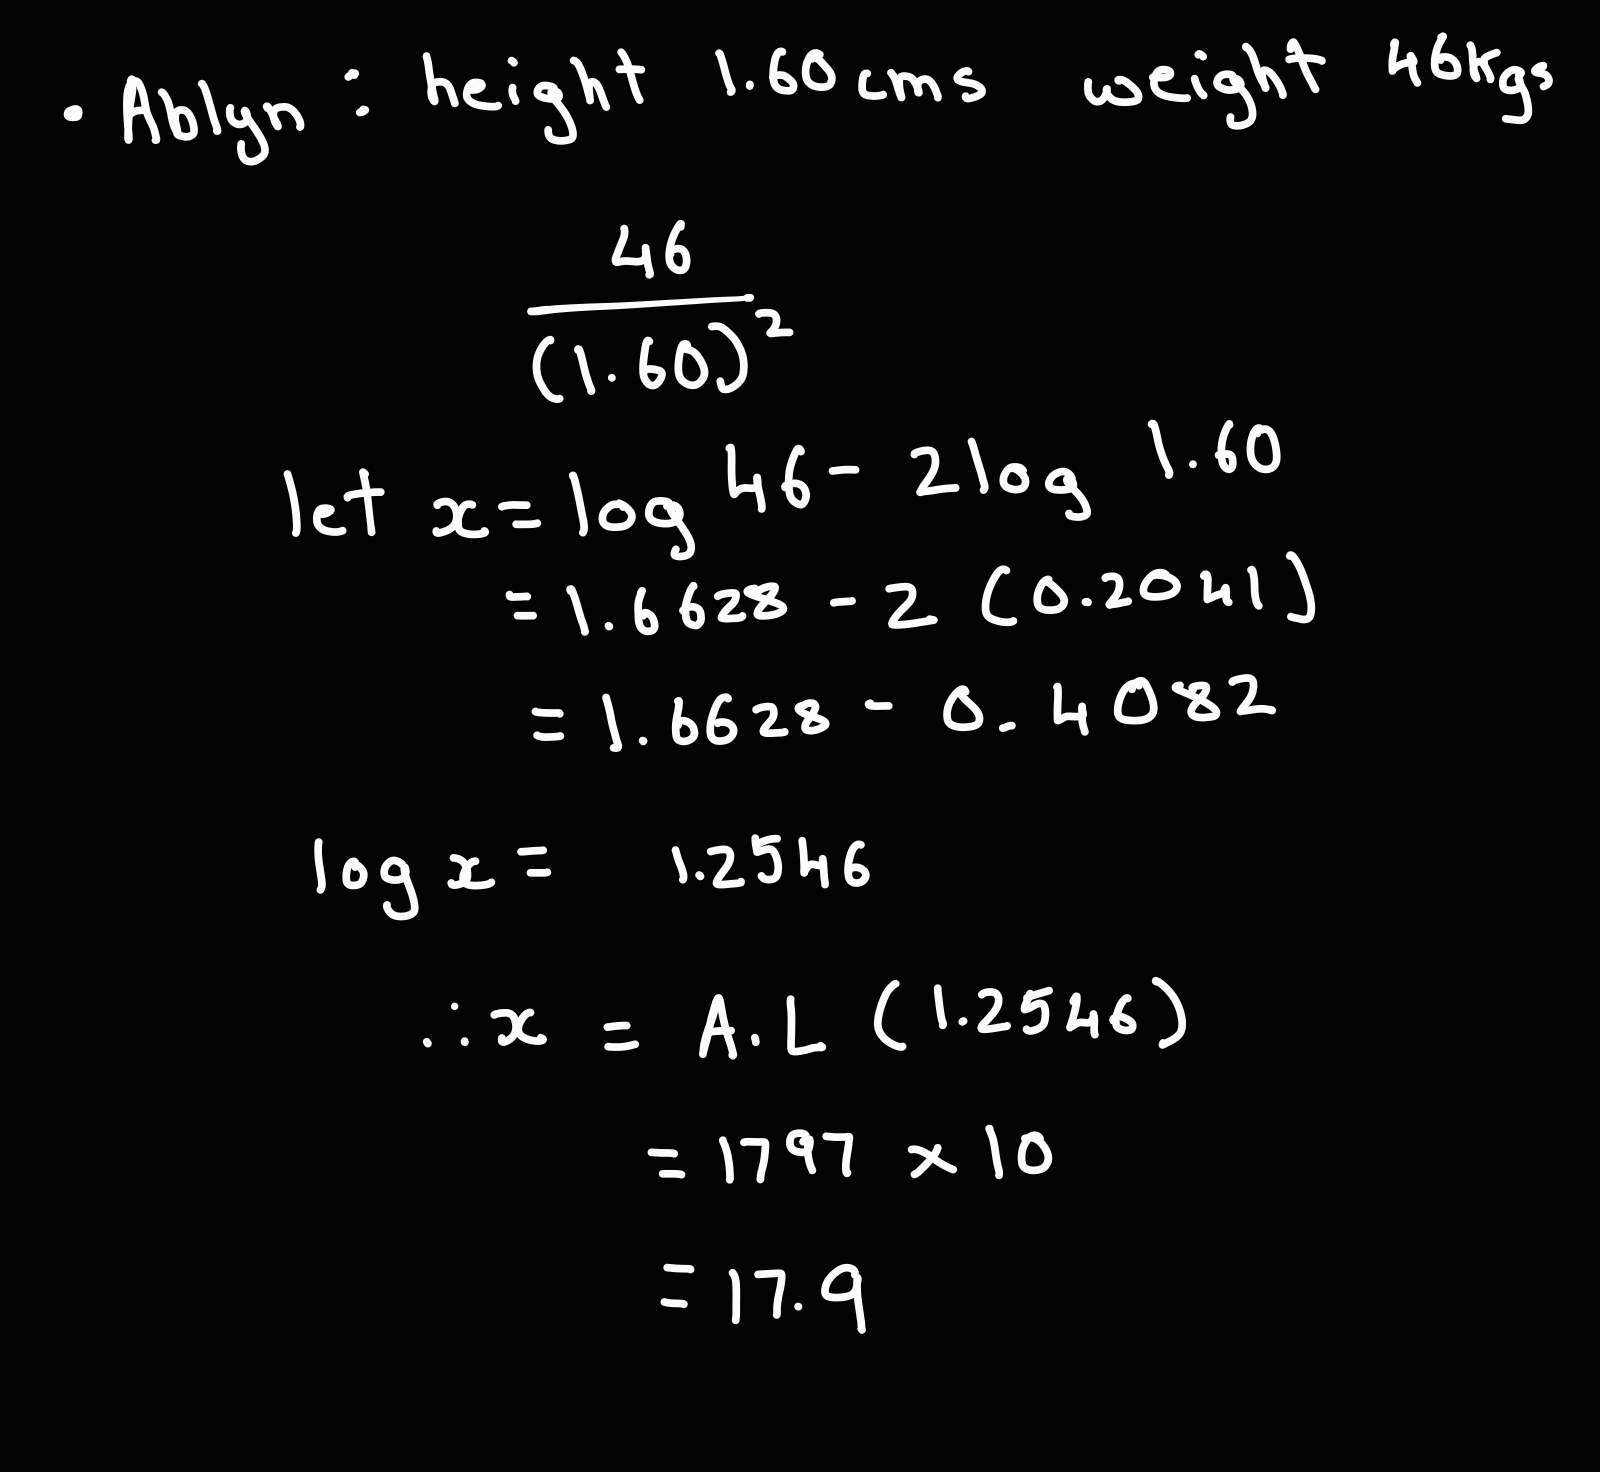 • Ablyn : height 1.60 cms weight 46kgs
46
(1.60)²
let x = log 46 - 2 log 1.60
= 1.6628 - 2 (0.2041)
= 1.6628 - 0.4082
log x = 1.2546
∴ x = A.L (1.2546)
= 1797 × 10
= 17.9